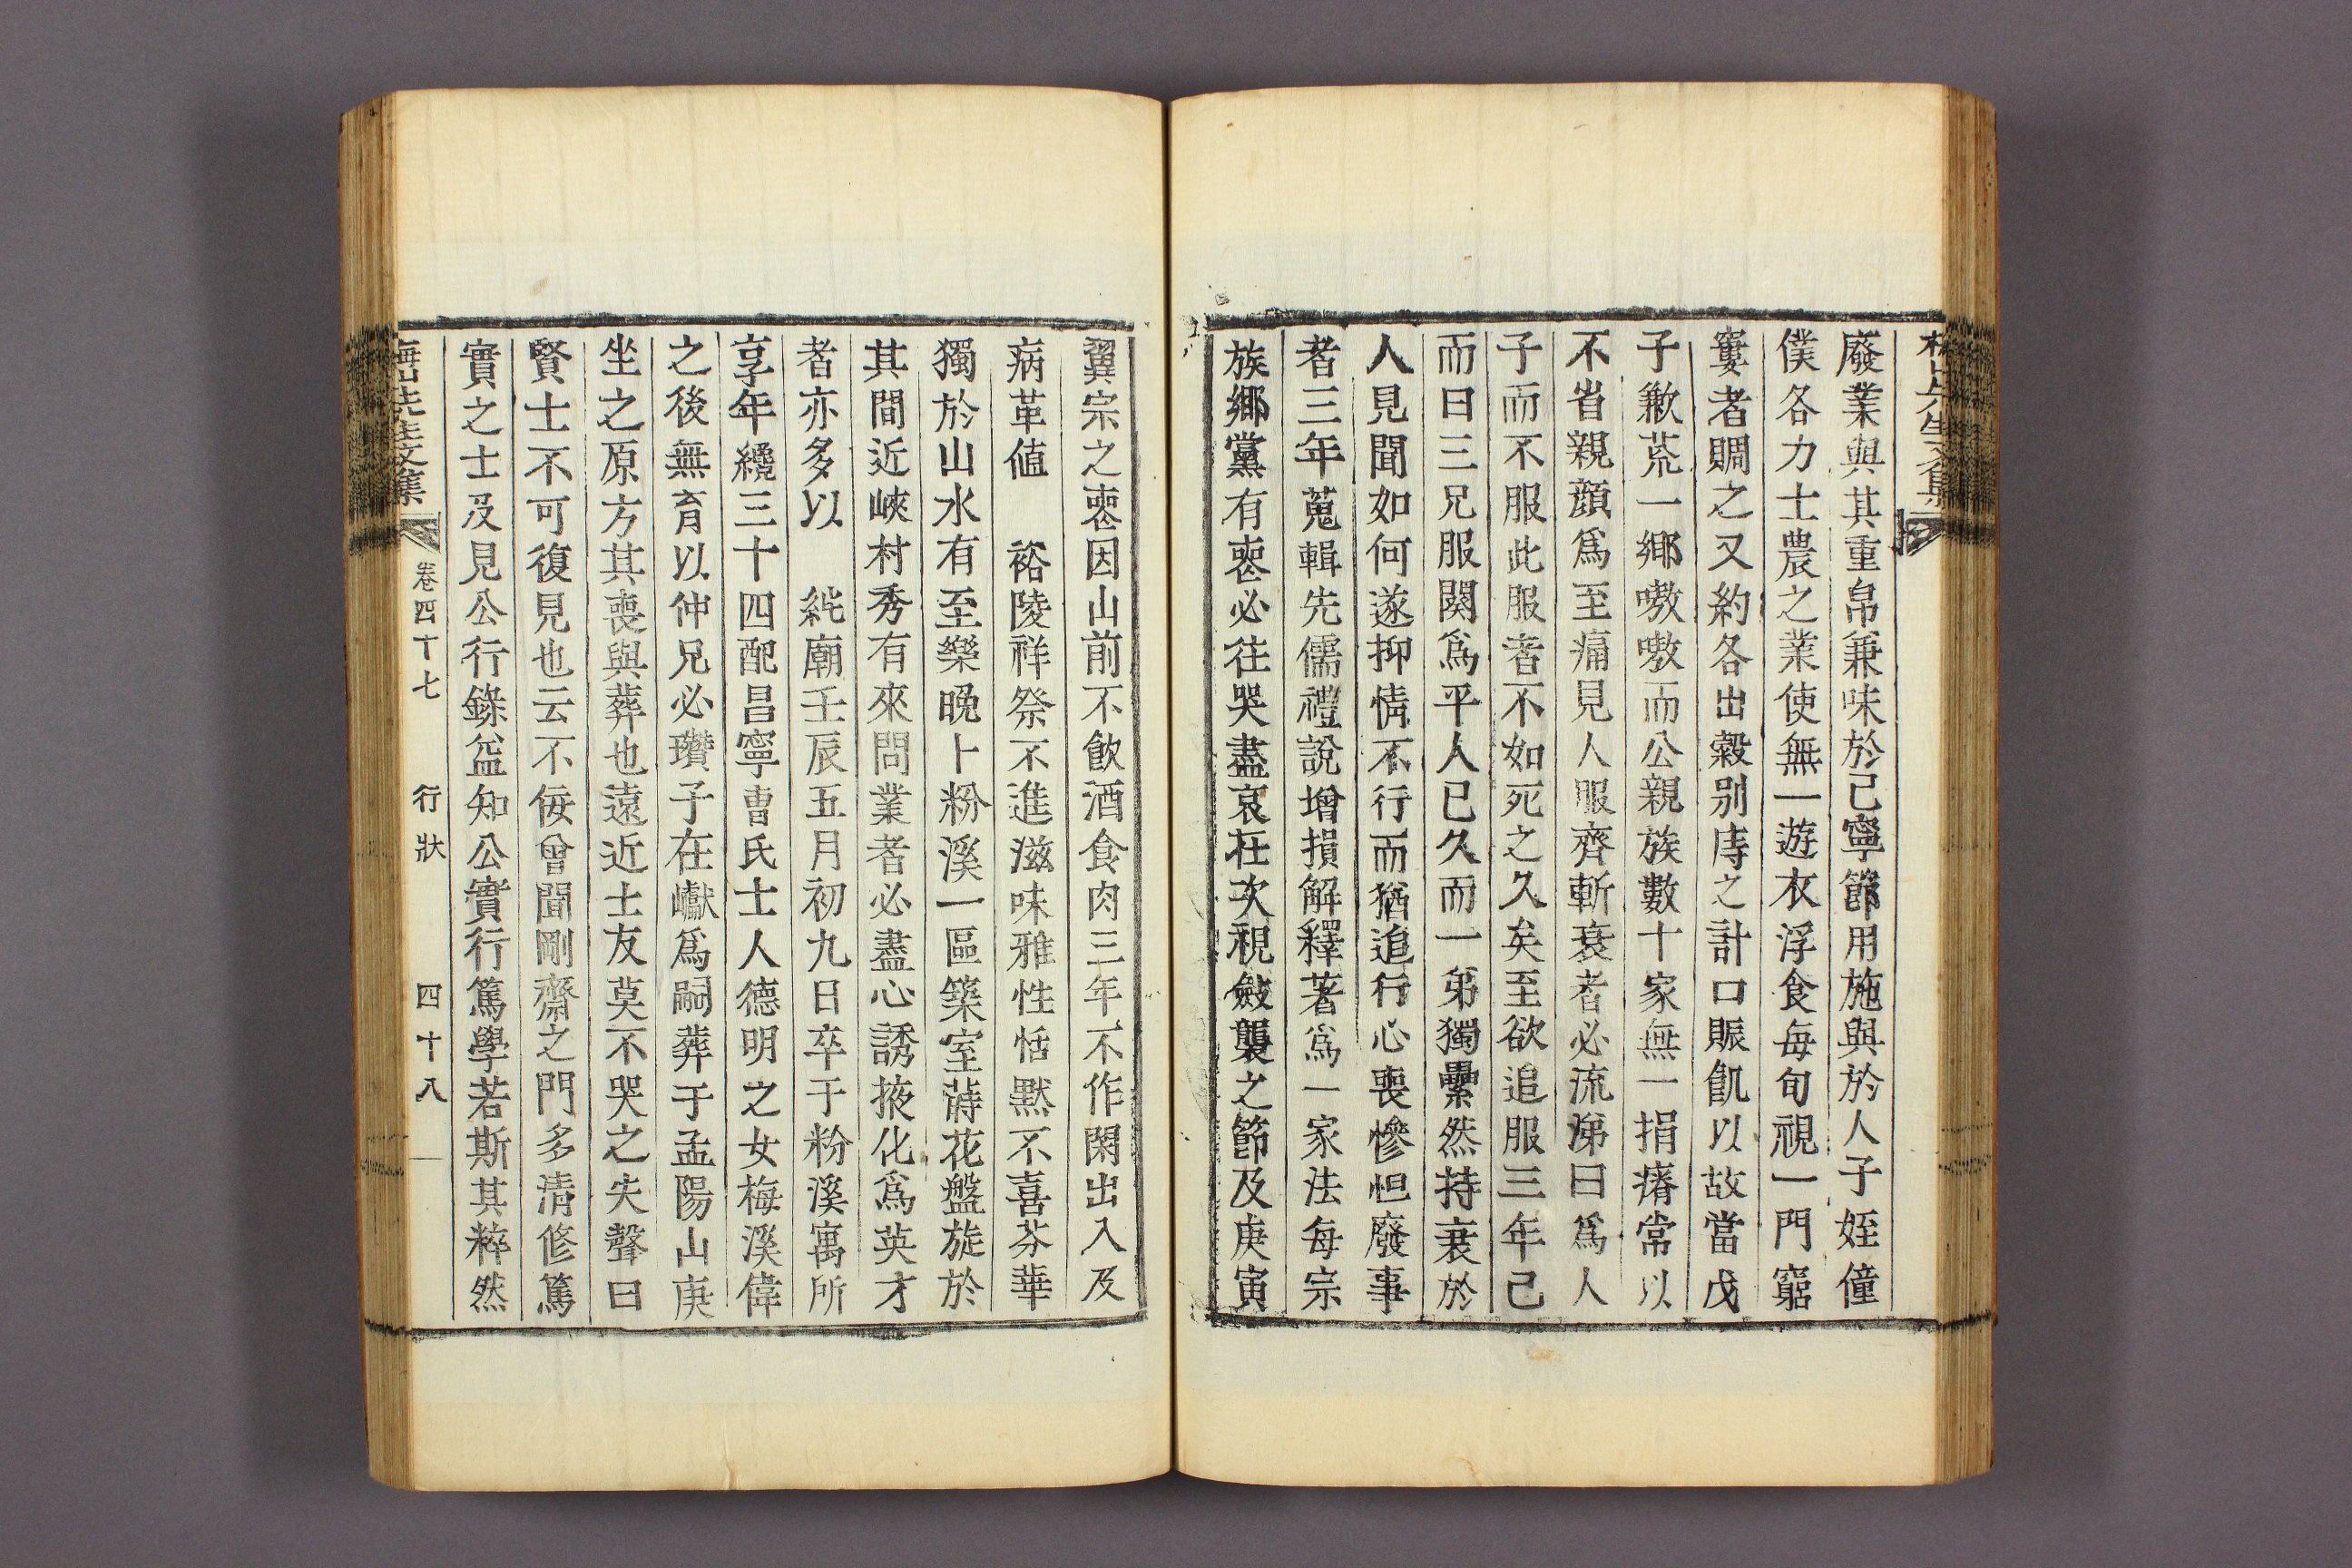 廢業與其重帛兼味於己寧節用施與於人子姪僮
僕各力士農之業使無一遊衣浮食每旬視一門窮
窶者賙之又約各出穀別庤之計口賑飢以故當戊
子歉荒一鄉嗷嗷而公親族數十家無一捐瘠常以
不省親顔爲至痛見人服齊斬衰者必流涕曰爲人
子而不服此服者不如死之久矣至欲追服三年己
而曰三兄服闋爲平人已久而一弟獨纍然持衰於
人見聞如何遂抑情不行而猶追行心喪慘怛廢事
者三年蒐輯先儒禮說增損解釋著爲一家法每宗
族鄉黨有喪必往哭盡哀在次視斂襲之節及庚寅
翼宗之喪因山前不飮酒食肉三年不作閑出入及
病革値 裕陵祥祭不進滋味雅性恬默不喜芬華
獨於山水有至樂晩卜粉溪一區築室蒔花盤旋於
其間近峽村秀有來問業者必盡心誘掖化爲英才
者亦多以 純廟壬辰五月初九日卒于粉溪寓所
享年纔三十四配昌寧曹氏士人德明之女梅溪偉
之後無育以仲兄必瓚子在巘爲嗣葬于孟陽山庚
坐之原方其喪與葬也遠近士友莫不哭之失聲曰
賢士不可復見也云不佞曾聞剛齋之門多清修篤
實之士及見公行錄益知公實行篤學若斯其粹然
梅山先生文集 卷四十七 行狀 四十八